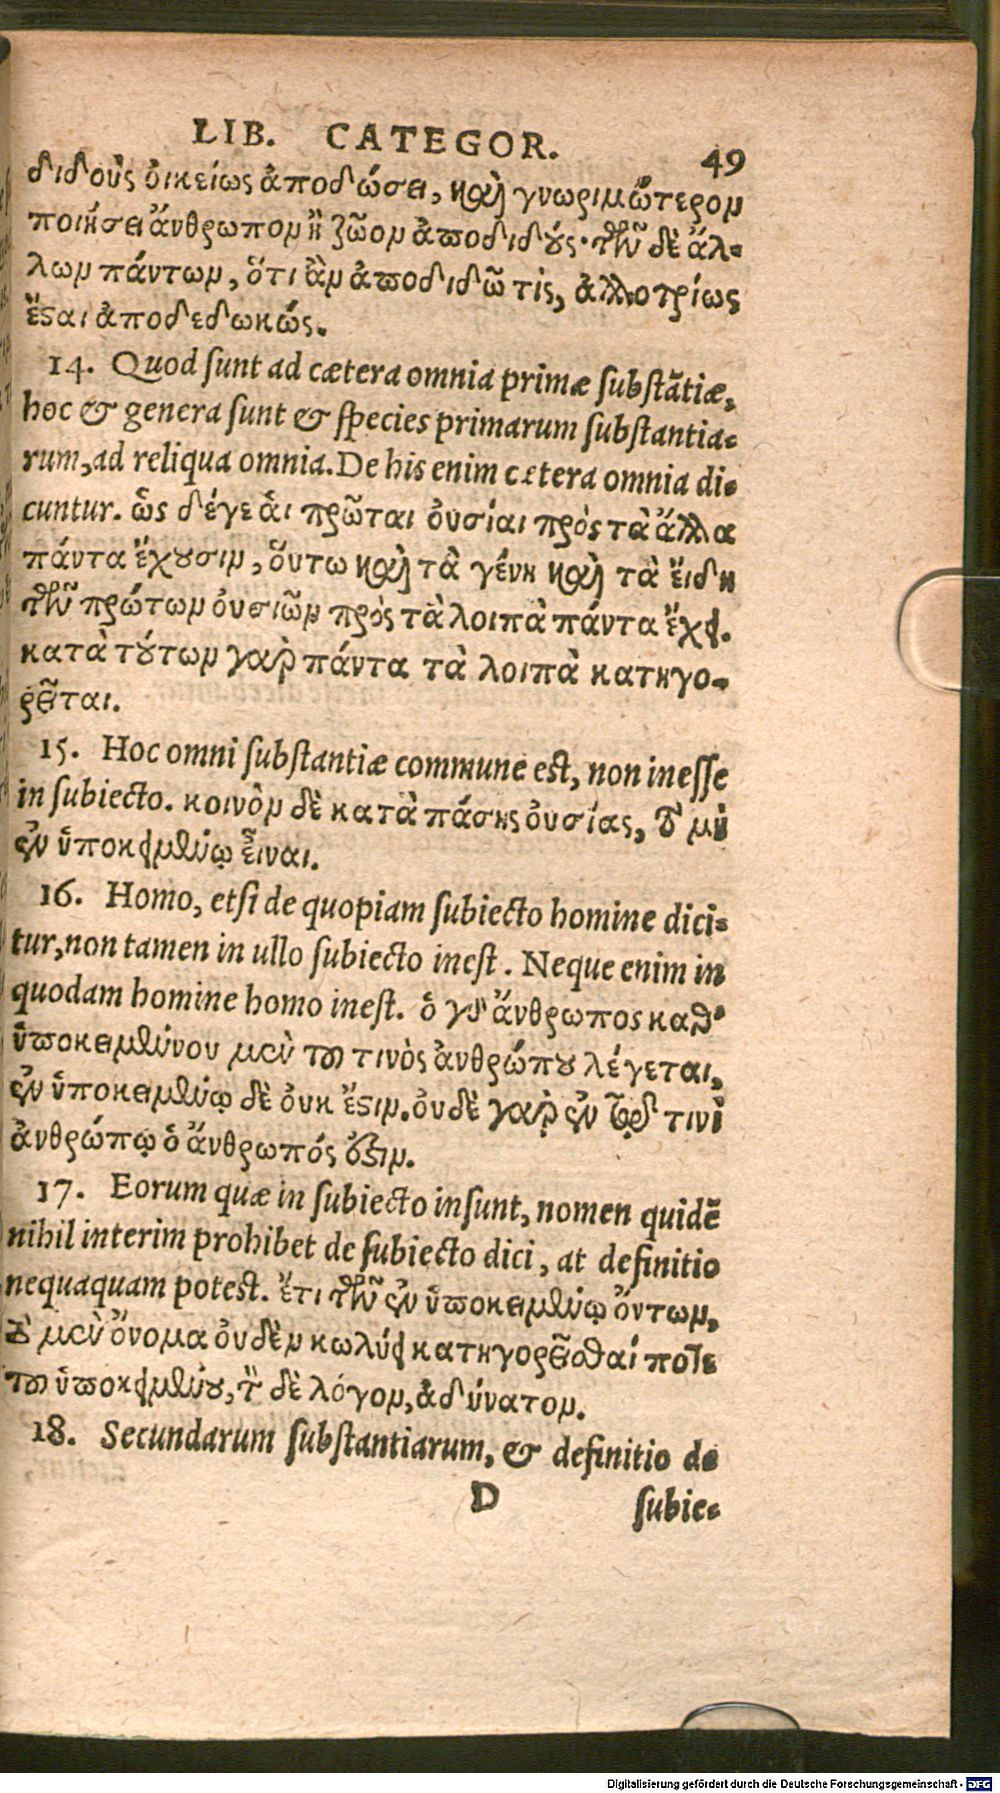 LIB. CATEGOR. 49
διδοὺς ὀικείως ἀποδώσει, καὶ γνωριμώτερον
ποιήσει ἄνθρωπον ἢ ζῶον ἀποδιδούς· τῶν δὲ ἄλ-
λων πάντων, ὅτι ἂν ἀποδιδῶ τὶς, ἀλλοτρίως
ἔσαι ἀποδεδωκώς.
14. Quod sunt ad cætera omnia primæ substãtiæ,
hoc & genera sunt & species primarum substantia-
rum, ad reliqua omnia. De his enim cætera omnia di-
cuntur. ὣς δέγε ἁι πρῶται ὀυσίαι πρὸς τὰ ἄλλα
πάντα ἔχουσιν, ὅυτω καὶ τὰ γένη καὶ τὰ ἔιδη
τῶν πρώτων ὀυσιῶν πρὸς τὰ λοιπὰ πάντα ἔχει.
κατὰ τούτων γὰρ πάντα τὰ λοιπὰ κατηγο-
ρεῖται.
15. Hoc omni substantiæ commune est, non inesse
in subiecto. κοινὸν δὲ κατὰ πάσης ὀυσίας, τὸ μὴ
ἐν ὑποκειμένῳ εἶναι.
16. Homo, etsi de quopiam subiecto homine dici-
tur, non tamen in ullo subiecto inest. Neque enim in
quodam homine homo inest. ὁ γὰρ ἄνθρωπος καθ'
ὑποκειμένου μὲν τοῦ τινὸς ἀνθρώπου λέγεται,
ἐν ὑποκειμένῳ δὲ ὀυκ ἔστιν. ὀυδὲ γὰρ ἐν τῷ τινὶ
ἀνθρώπῳ ὁ ἄνθρωπός ἐστιν.
17. Eorum quæ in subiecto insunt, nomen quidẽ
nihil interim prohibet de subiecto dici, at definitio
nequaquam potest. ἔτι τῶν ἐν ὑποκειμένῳ ὄντων,
τὸ μὲν ὄνομα ὀυδὲν κωλύει κατηγορεῖσθαί ποτε
τοῦ ὑποκειμένου, τὸν δὲ λόγον, ἀδύνατον.
18. Secundarum substantiarum, & definitio de
D subie-
Digitalisierung gefördert durch die Deutsche Forschungsgemeinschaft - DFG